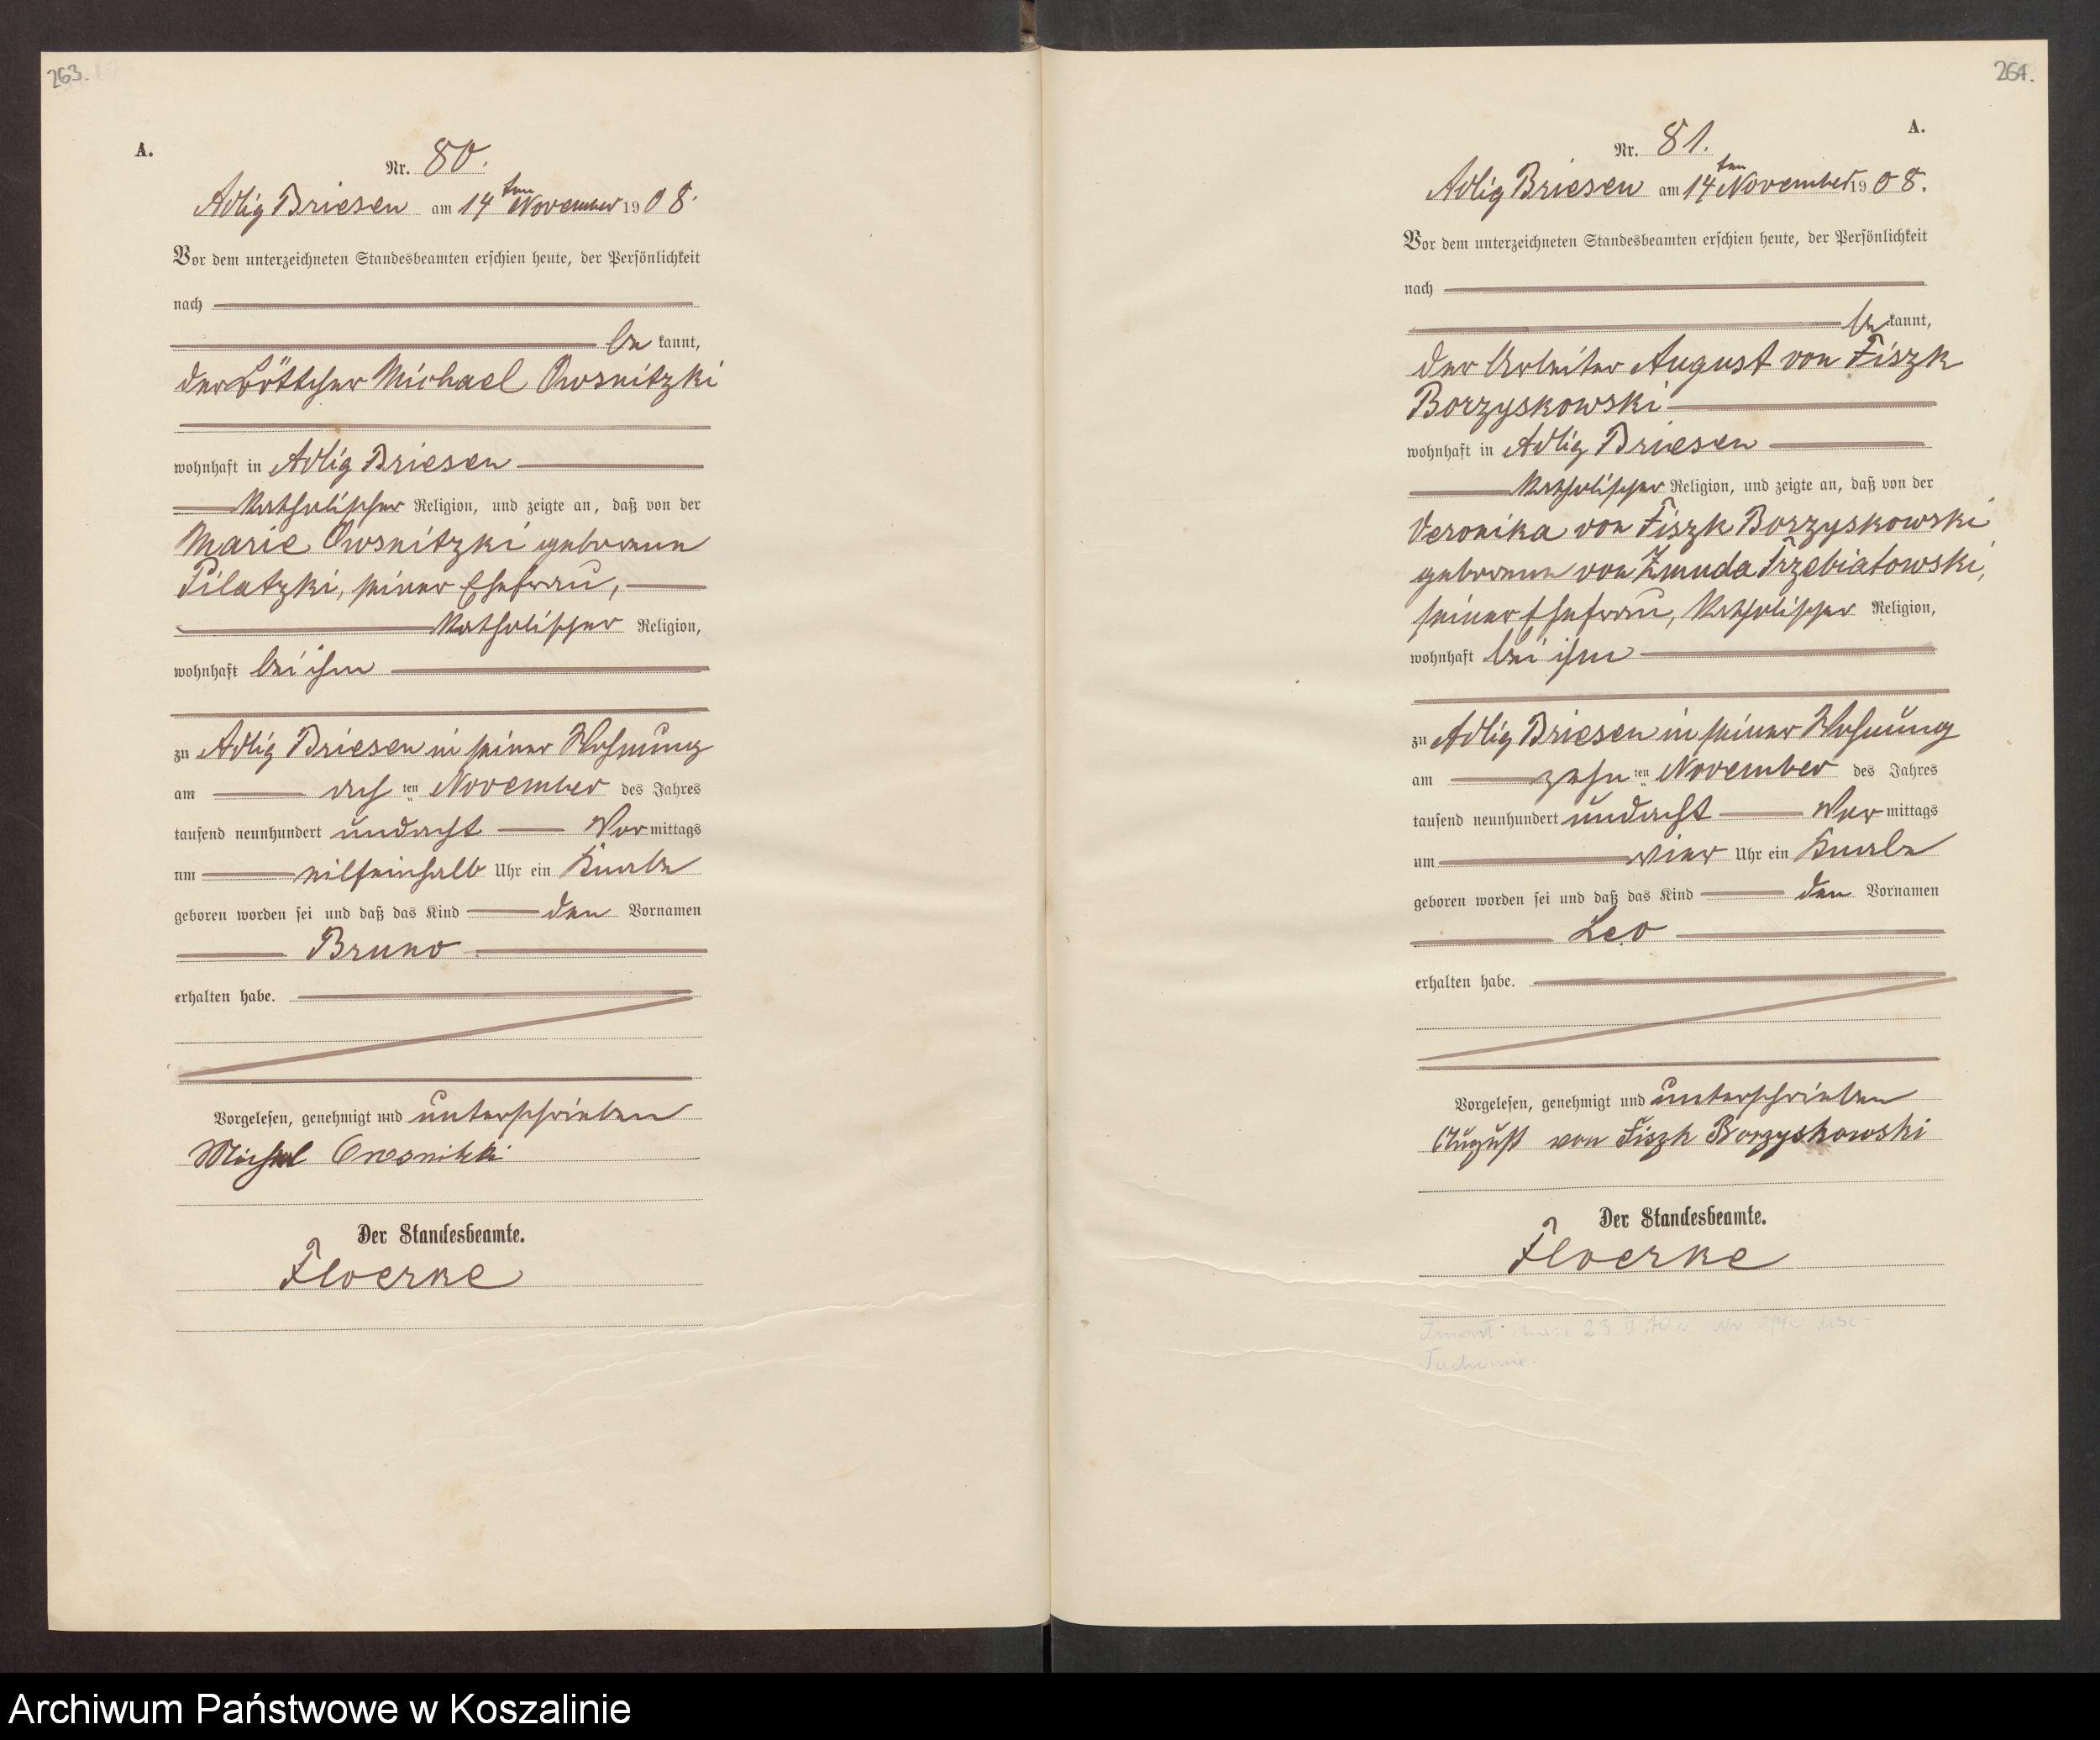 263.
A.
Nr. 80.
Adlig Briesen am 14ten November 1908.
Vor dem unterzeichneten Standesbeamten erschien heute, der Persönlichkeit
nach
be kannt,
der Böttcher Michael Owsnitzki
wohnhaft in Adlig Briesen
katholischer Religion, und zeigte an, daß von der
Marie Owsnitzki geborene
Pilatzki, seiner Ehefrau,
katholischer Religion,
wohnhaft bei ihm
zu Adlig Briesen in seiner Wohnung
am ten November des Jahres
tausend neunhundert undacht Vor mittags
um Uhr ein Knabe
geboren worden sei und daß das Kind den Vornamen
Bruno
erhalten habe.
Vorgelesen, genehmigt und unterschrieben
Michael Owsnitzki
Der Standesbeamte.
Floerke
264.
A.
Nr. 81.
Adlig Briesen am 14ten November 1908.
Vor dem unterzeichneten Standesbeamten erschien heute, der Persönlichkeit
nach
be kannt,
der Arbeiter August von Fiszk
Borzyskowski
wohnhaft in Adlig Briesen
katholischer Religion, und zeigte an, daß von der
Veronika von Fiszk Borzyskowski
geborene von Zmuda Trzebiatowski,
seiner Ehefrau, katholischer Religion,
wohnhaft bei ihm
zu Adlig Briesen in seiner Wohnung
am zehn ten November des Jahres
tausend neunhundert undacht Vor mittags
um vier Uhr ein Knabe
geboren worden sei und daß das Kind den Vornamen
Leo
erhalten habe.
Vorgelesen, genehmigt und unterschrieben
August von Fiszk Borzyskowski
Der Standesbeamte.
Floerke
Archiwum Państwowe w Koszalinie